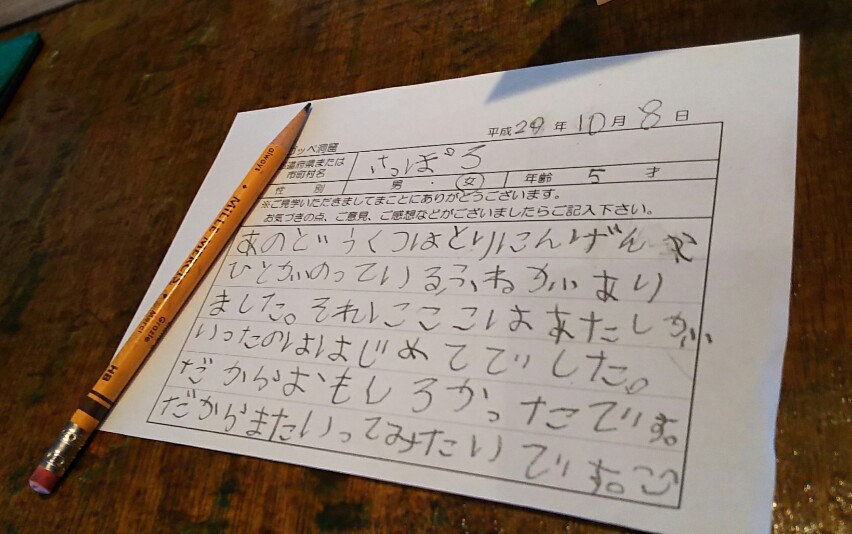 平成29年10月8日
ゴッペ洞窟
道府県または
市町村名 さっぽろ
性別 男・女 年齢 5才
※ご見学いただきましてまことにありがとうございます。
お気づきの点、ご意見、ご感想などがございましたらご記入下さい。
あのどうくつはとりにんげんや
ひとがのっているふねがあり
ました。それにここはあたしが
いったのははじめてでした。
だからおもしろかったてです。
だからまたいってみたいです。
always ✦ MiLLE MERCiS ✦ Grazie Merci HB